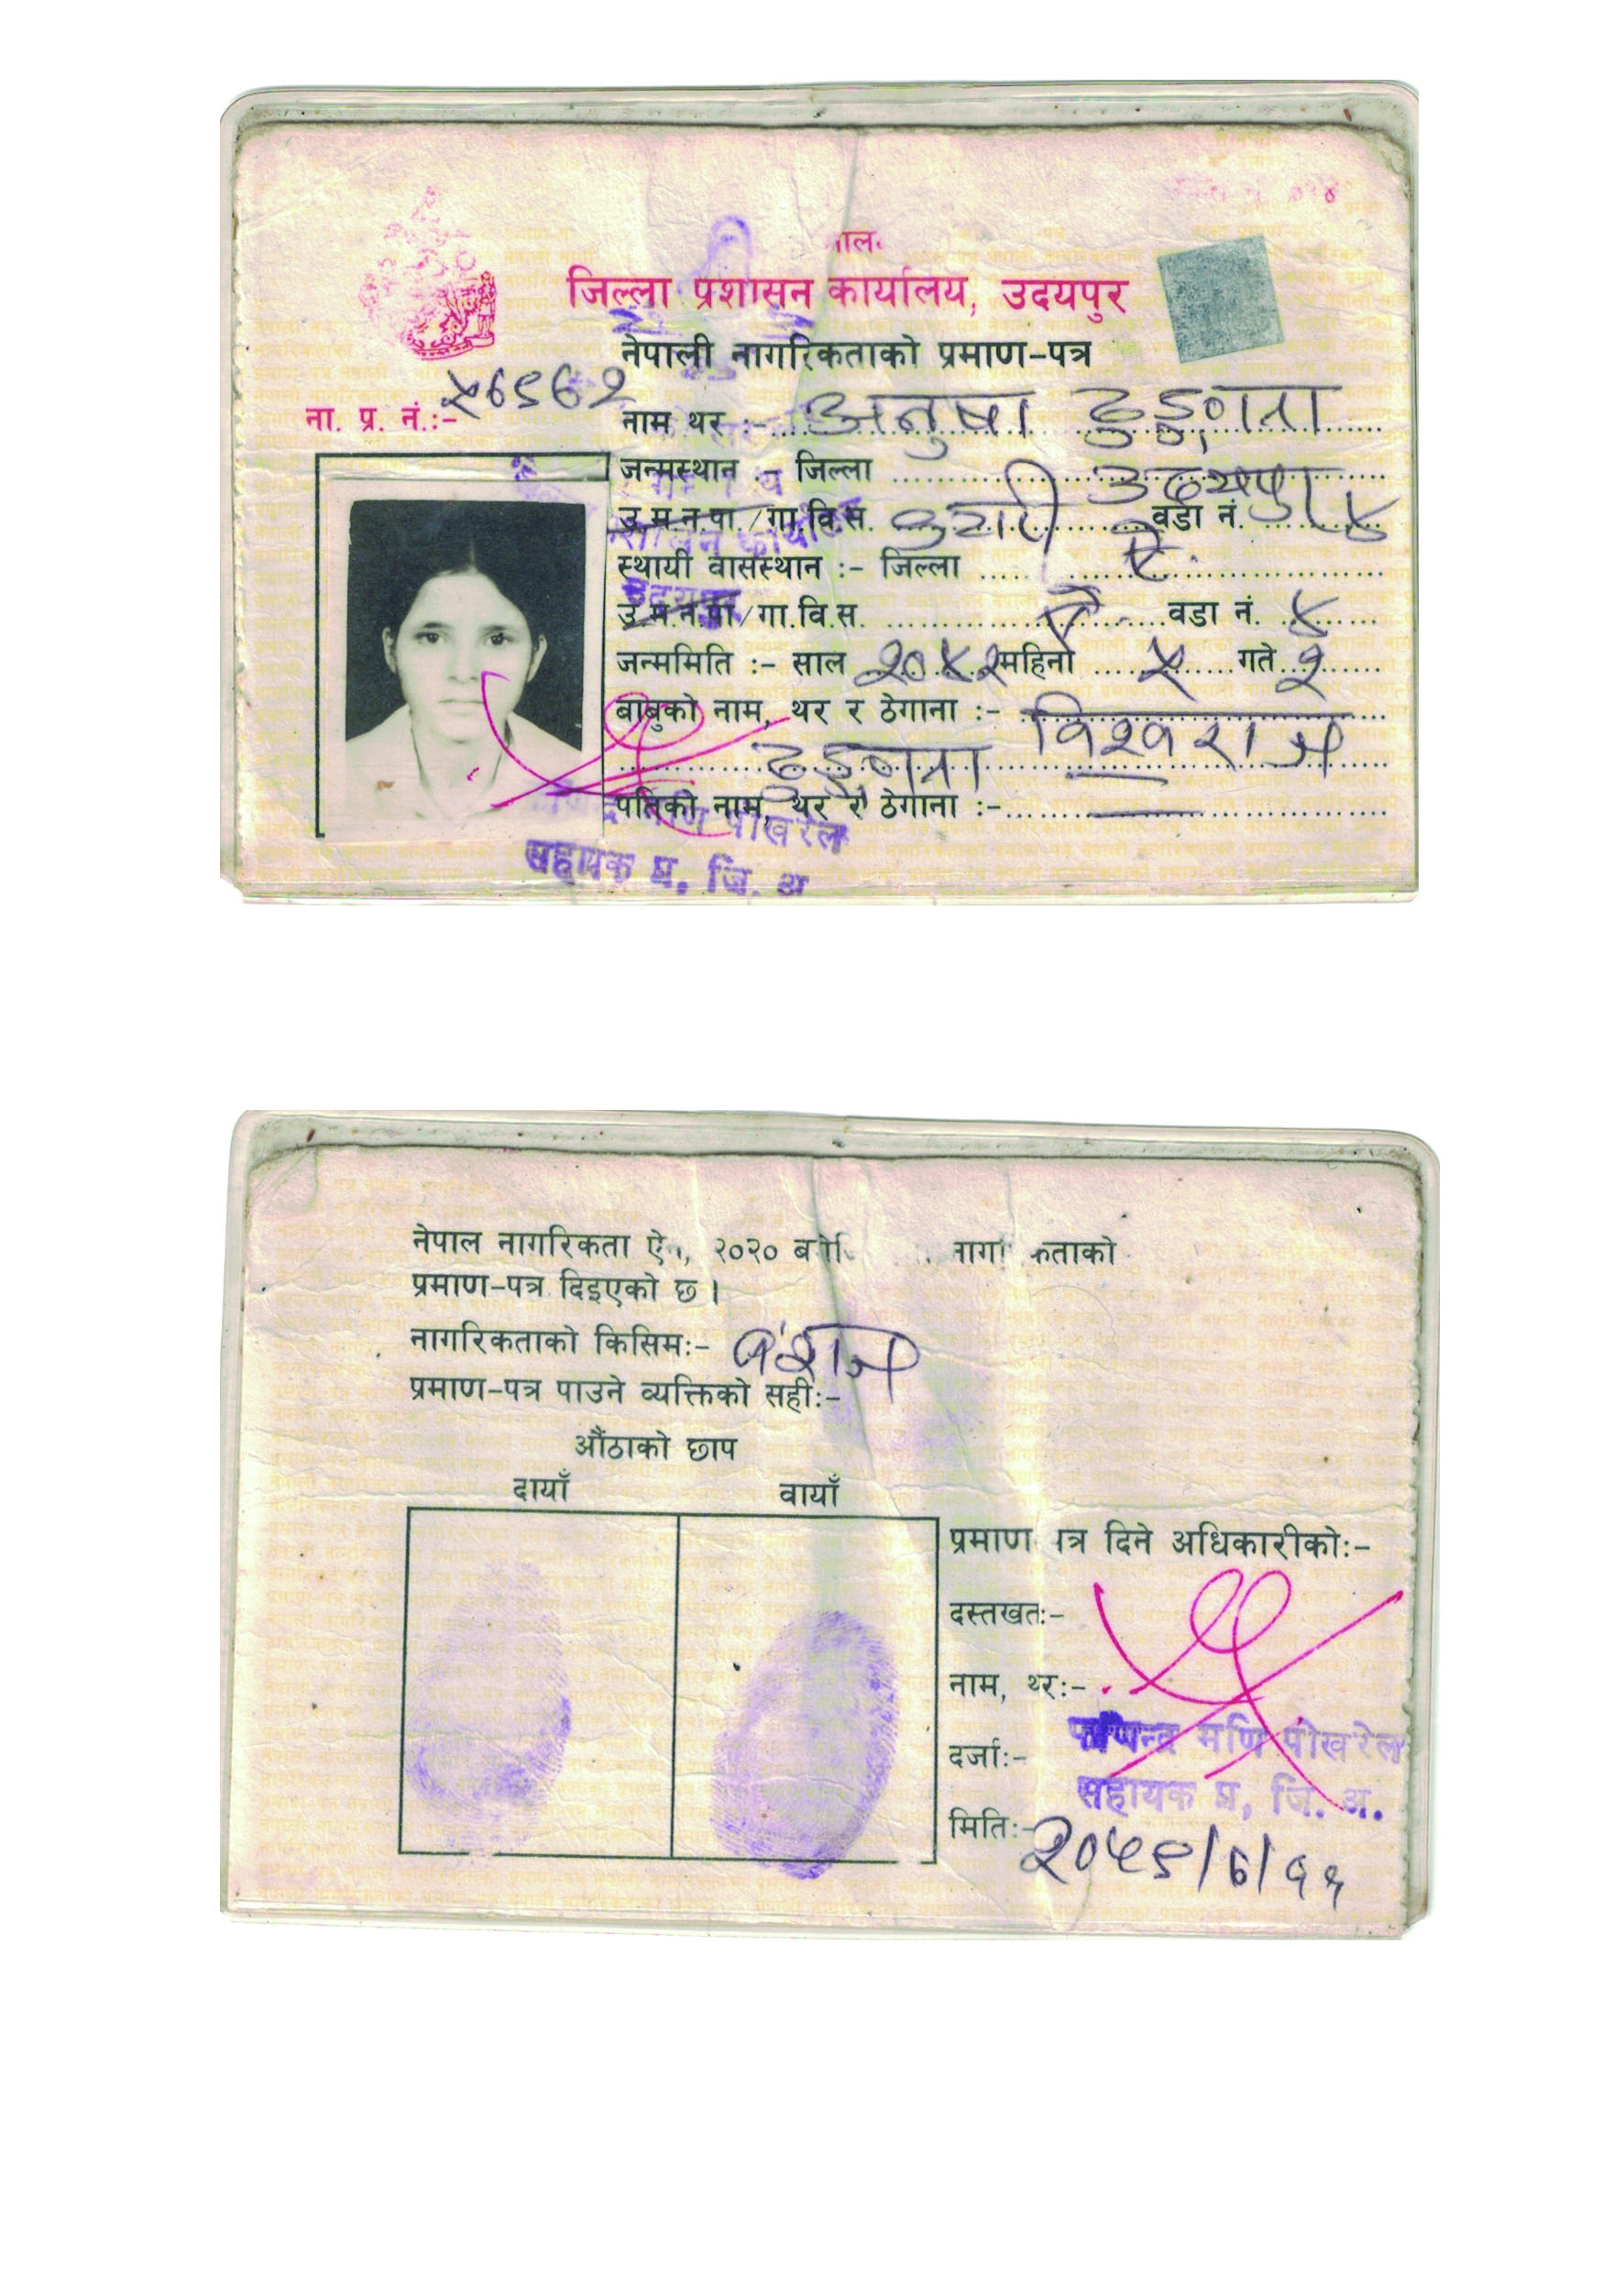 जिल्ला प्रशासन कार्यालय, उदयपुर
नेपाली नागरिकताको प्रमाण-पत्र
ना. प्र. नं.:-
नाम थर :- अनुषा ढुङ्गाना
जन्मस्थान :- जिल्ला उदयपुर
उ.म.न.पा./गा.वि.स. वडा नं. ४
स्थायी वासस्थान :- जिल्ला ऐ.
उ.म.न.पा/गा.वि.स. ऐ वडा नं. ४
जन्ममिति :- साल २०४२ महिना ५ गते २
बाबुको नाम, थर र ठेगाना :- विश्वराज
ढुङ्गाना
पतिको नाम, थर र ठेगाना :-
मणि पोखरेल
सहायक प्र. जि. अ
नेपाल नागरिकता २०२०
प्रमाण-पत्र दिइएको छ ।
नागरिकताको किसिम:- वंशज
प्रमाण-पत्र पाउने व्यक्तिको सही:-
औंठाको छाप
दायाँ वायाँ
प्रमाण पत्र दिने अधिकारीको:-
दस्तखत:-
नाम, थर:-
मणि पोखरेल
दर्जा:-
सहायक प्र. जि. अ.
मिति:-